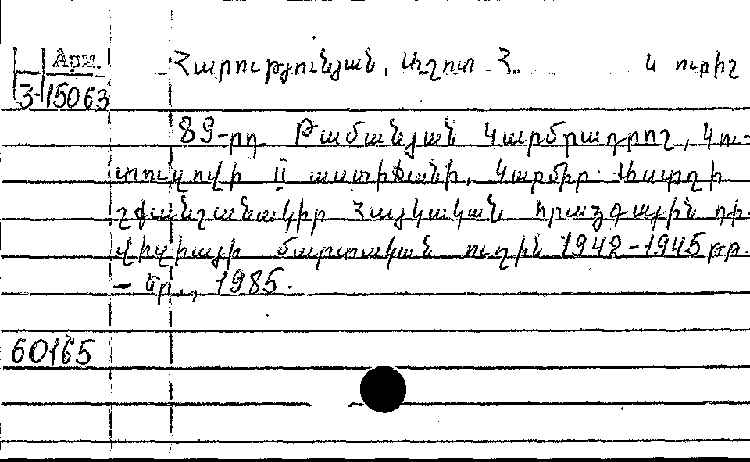 Арм.
3-15063
Հարությունյան, Աշոտ Հ. և ուրիշ
89-րդ Թամանյան Կարմրադրոշ, Կու-
տուզովի II աստիճանի, Կարմիր Աստղի
շքանշանակիր Հայկական հրաձգային դի
վիզիայի մարտական ուղին 1942-1945 թթ.
- Եր., 1985.
60165